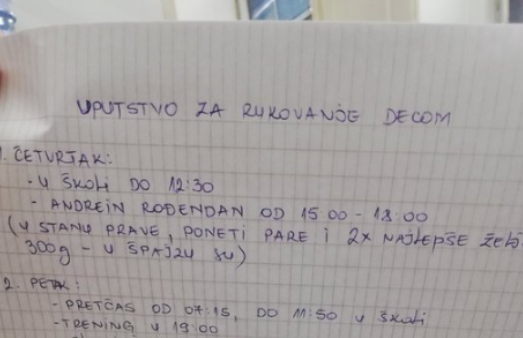 UPUTSTVO ZA RUKOVANJE DECOM
1. ČETVRTAK:
- U ŠKOLI DO 12:30
- ANDREIN ROĐENDAN OD 15 00 - 18:00
(U STANU PRAVE, PONETI PARE I 2X NAJLEPŠE ŽELJ
300g - U ŠPAJZU SU)
2. PETAK:
- PRETČAS OD 07:15, DO 11:50 U ŠKOLI
- TRENING U 19:00